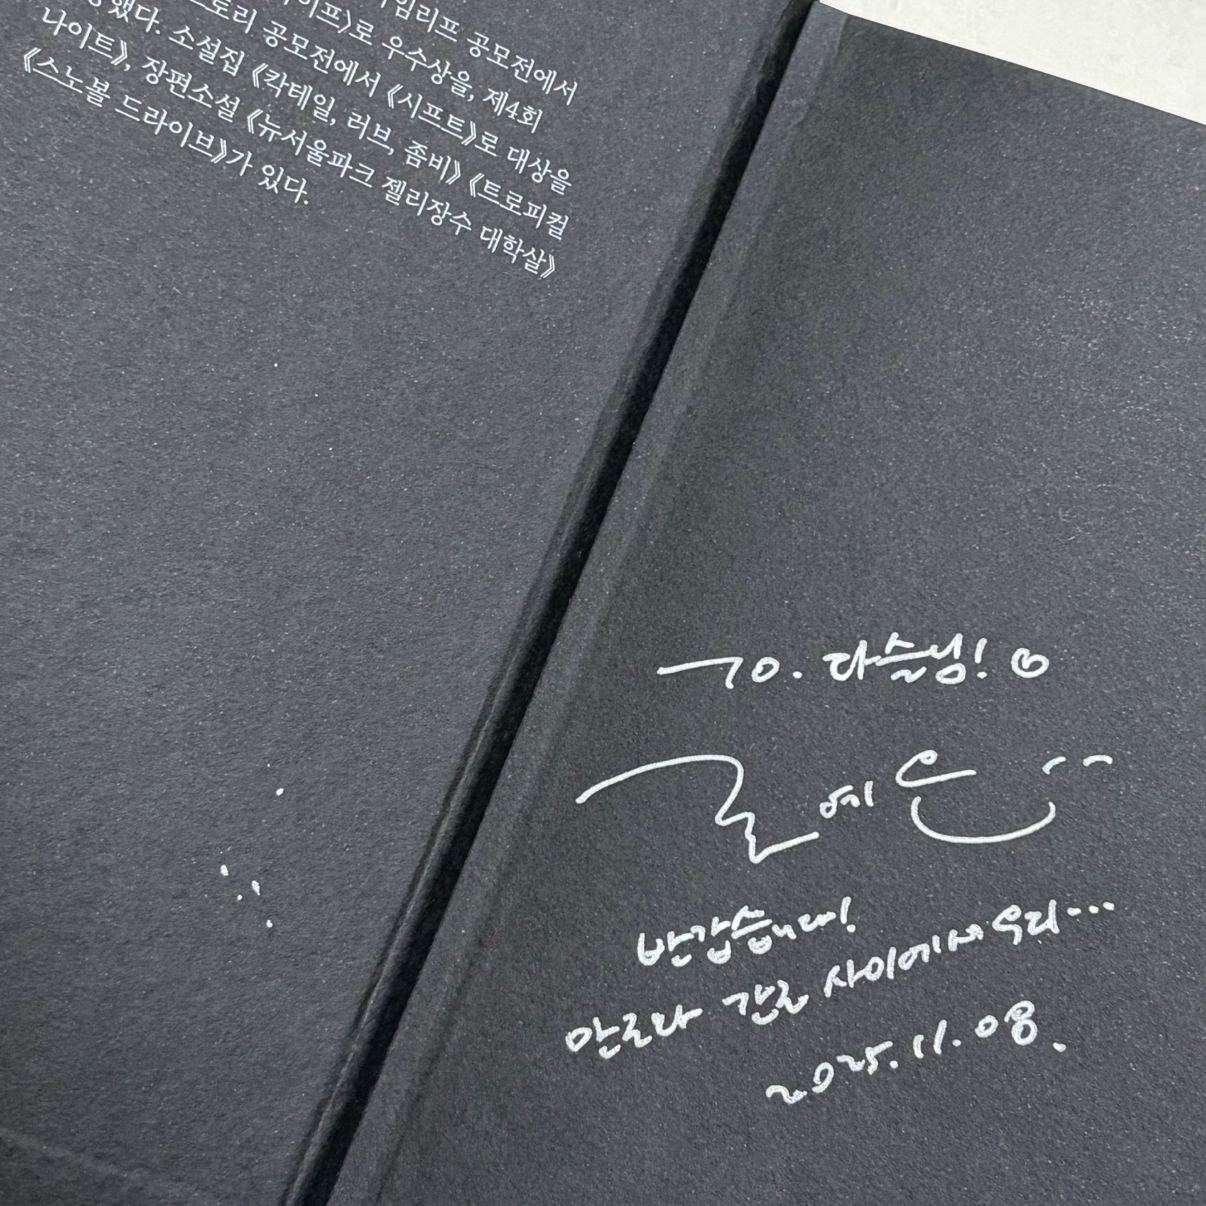 임리프 공모전에서
이프》로 우수상을, 제4회
스토리 공모전에서 《시프트》로 대상을
했다. 소설집 《칵테일, 러브, 좀비》 《트로피컬
나이트》, 장편소설 《뉴서울파크 젤리장수 대학살》
《스노볼 드라이브》가 있다.
To. 다슬님! ♡
조예은
반갑습니다!
안근과 간근 사이에서 우리…
2025.11.08.